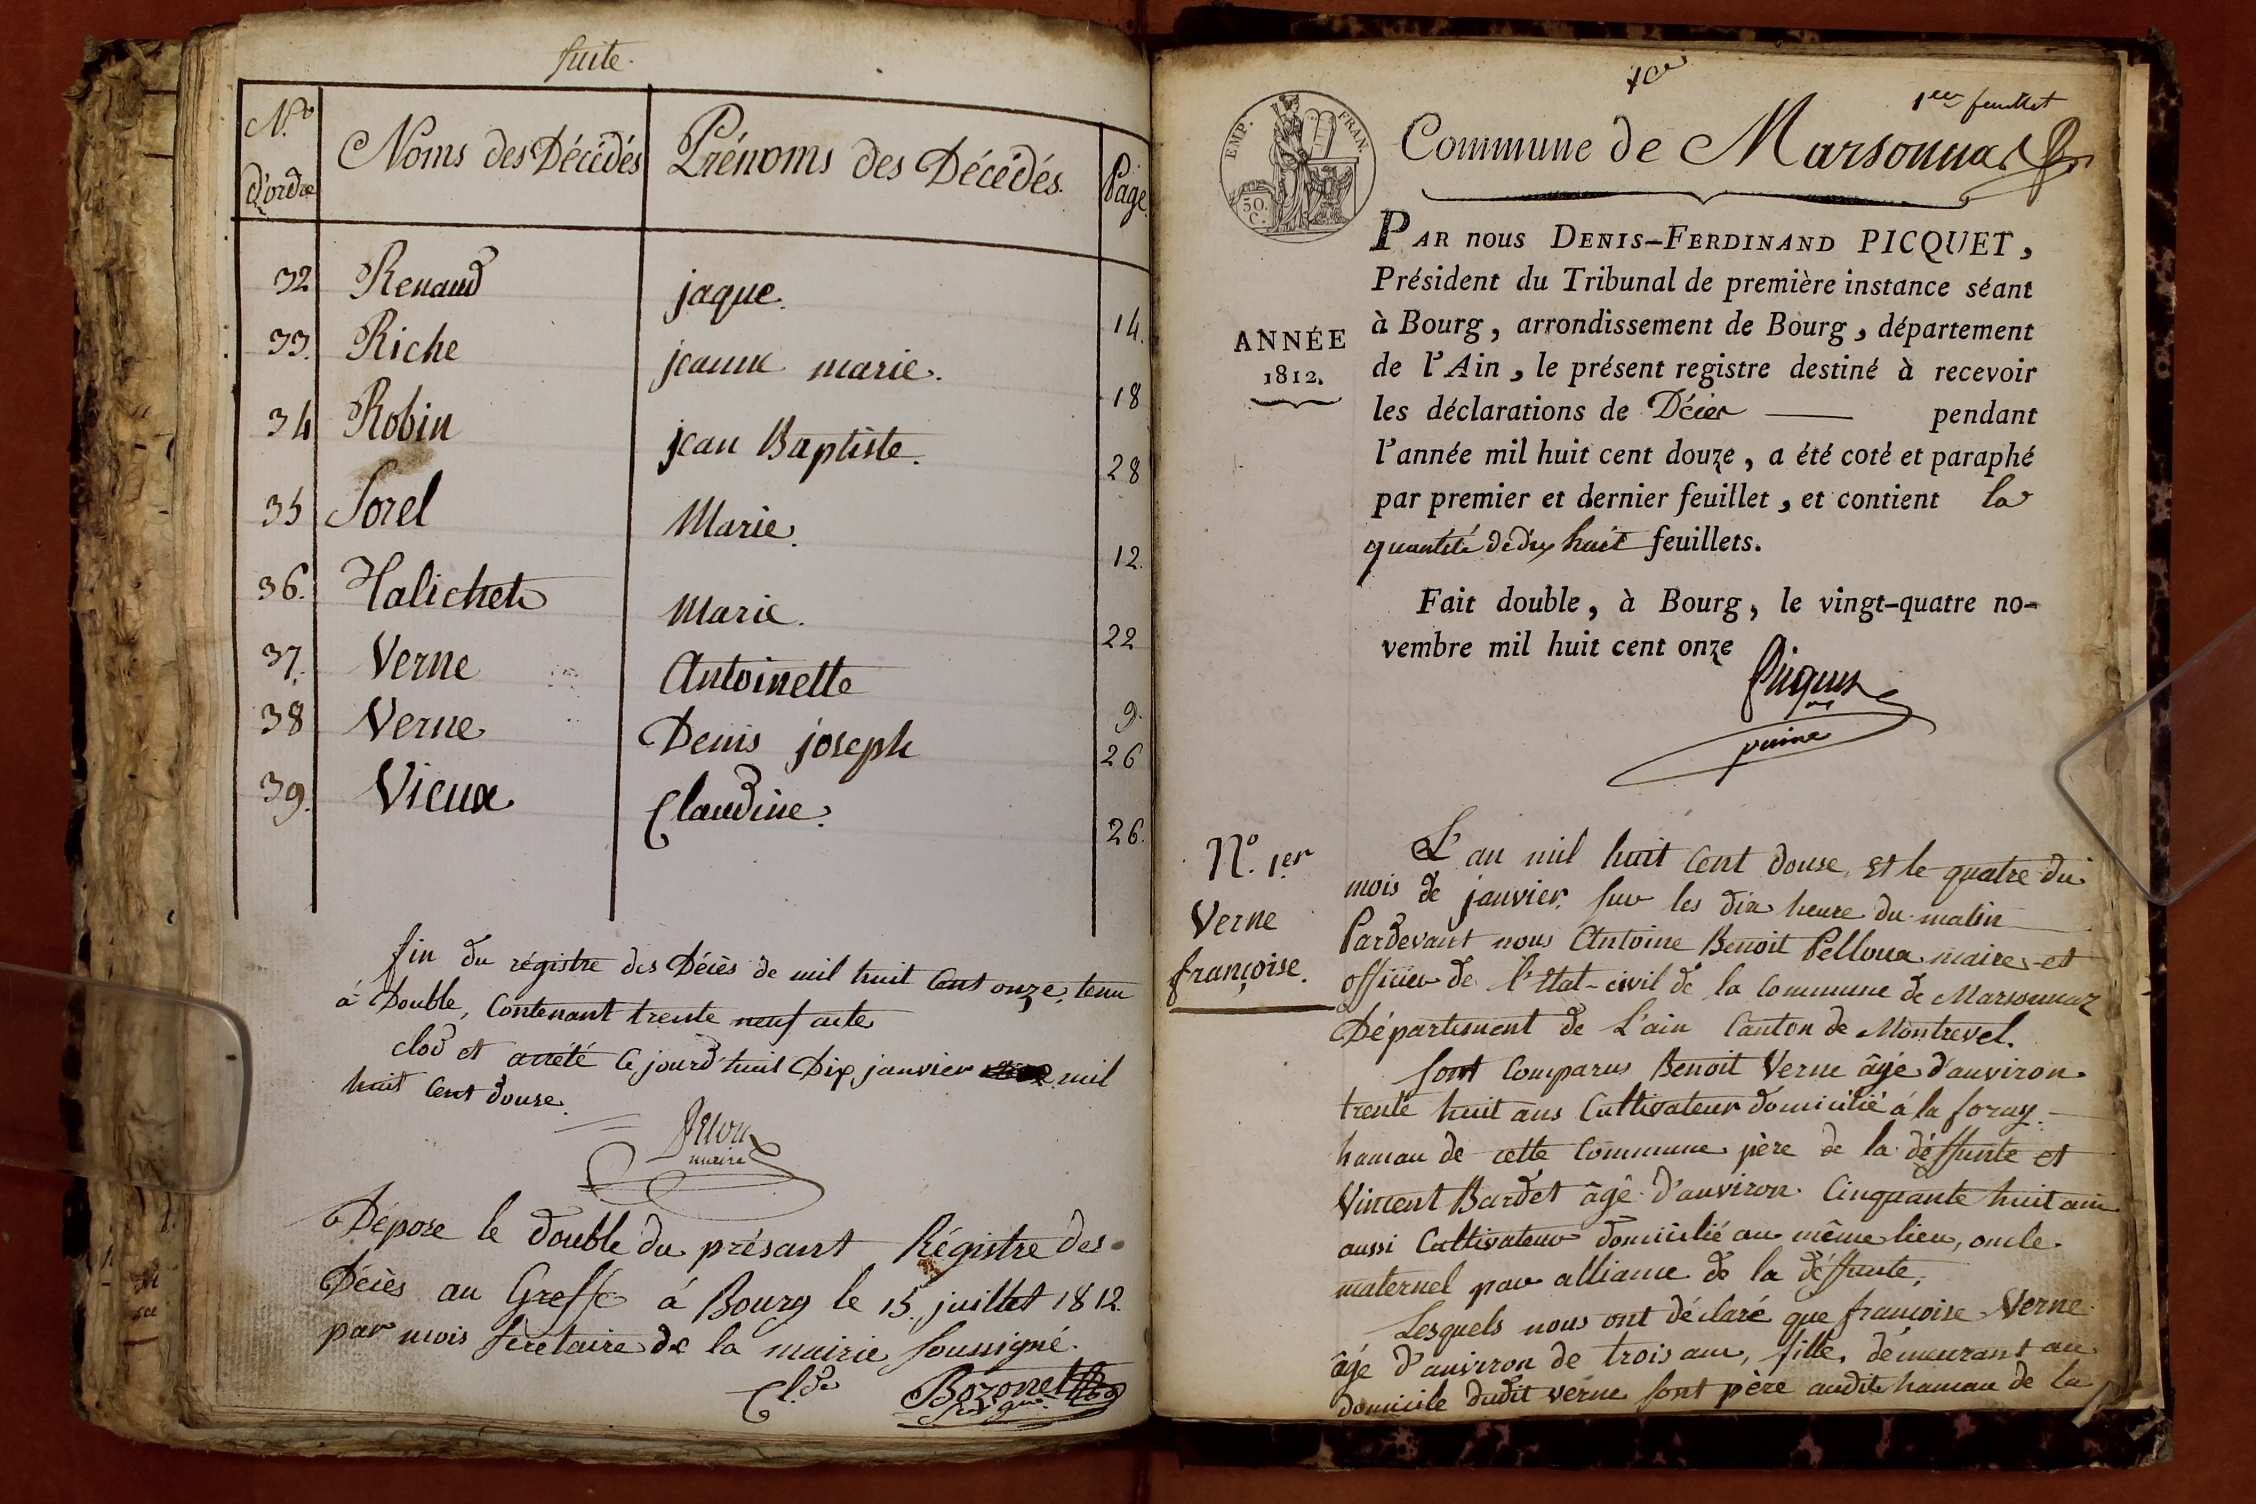 suite.
N.º d'ordre
Noms des Décédés
Prénoms des Décédés.
Page.
32 Renaud jaque. 14.
33. Riche jeanne marie. 18
34 Robin jean Baptiste. 28
35 Sorel Marie. 12.
36. Halichet Marie. 22
37. Verne Antoinette 9.
38 Verne Denis joseph 26
39. Vieux Claudine. 26.
fin du régistre des Décès de mil huit Cent onze, tenu
à Double, Contenant trente neuf acte
clod et arrété Ce jourd'huit Dix janvier mil
huit Cent douse.
maire
Dépose le double du présant Régistre des
Décès au Greffe à Bourg le 15. juillet 1812.
par mois secretaire de la mairie soussigné.
Cl.de Bozonet
1er feuillet
EMP. FRAN.
50. C.
Commune de Marsonnas
PAR nous DENIS-FERDINAND PICQUET,
Président du Tribunal de première instance séant
à Bourg, arrondissement de Bourg, département
ANNÉE
1812.
de l'Ain, le présent registre destiné à recevoir
les déclarations de Décier pendant
l'année mil huit cent douze, a été coté et paraphé
par premier et dernier feuillet, et contient la
quantité de dix huit feuillets.
Fait double, à Bourg, le vingt-quatre no-
vembre mil huit cent onze
Picquet
N.º 1.er
Verne
françoise.
L'an mil huit Cent douse, Et le quatre du
mois de janvier, sur les dix heure du matin
Pardevant nous Antoine Benoit Pelloux maire et
officier de l'Etat-civil de la Commune de Marsonnaz
Département de L'ain Canton de Montrevel.
Sont Comparus Benoit Verne âgé d'anviron
trente huit ans Cultivateur domicilié à la foray
hamau de cette Commune père de la déffunte et
Vincent Bardet âgé d'anviron Cinquante huit ans
aussi Cultivateur domicilié au même lieu, oncle
maternel par alliance de la déffunte,
Lesquels nous ont déclaré que francoise Verne
âgé d'anviron de trois ans, fille, démeurant au
domicile dudit verne sont père audit hamau de la